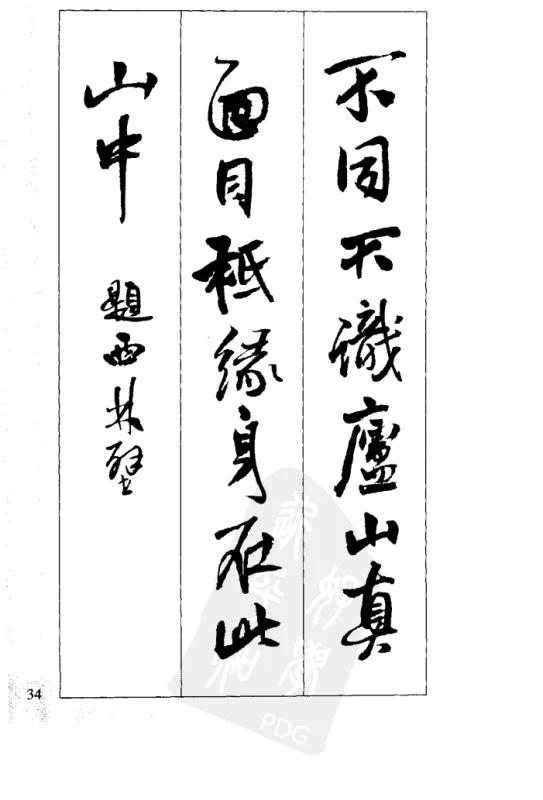 不同不識廬山真
面目秖緣身在此
山中
題西林壁
34
PDG